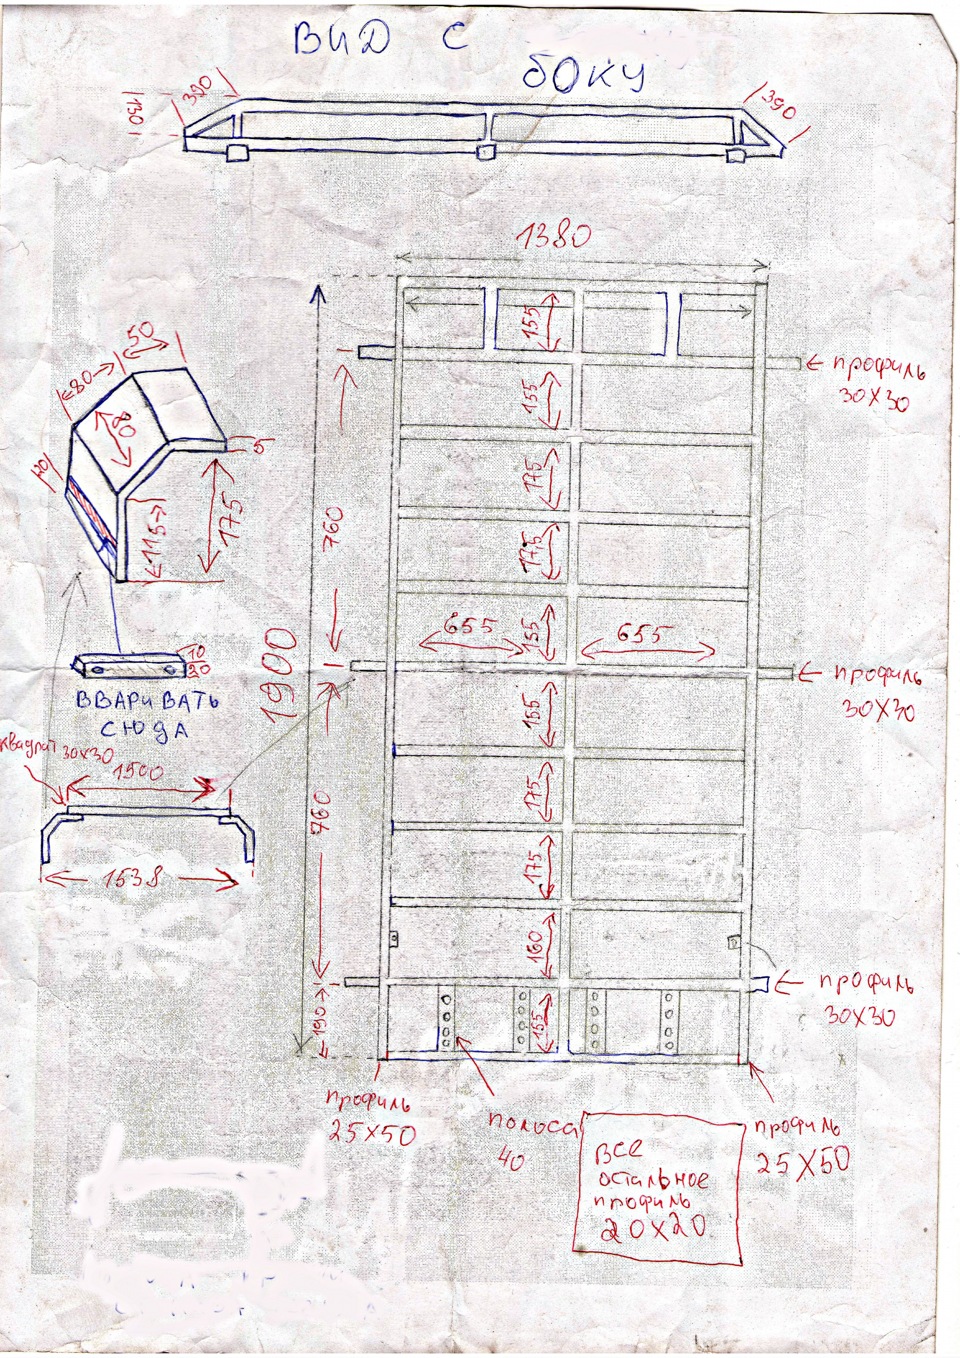 ВИД С
БОКУ
390
130
390
1380
50
80
80
5
20
115
175
10
20
ВВАРИВАТЬ
СЮДА
квадрат 30х30
1500
1538
1900
760
760
190
155
155
175
175
155
655
655
155
175
175
160
155
профиль
30х30
профиль
30х30
профиль
30х30
профиль
25х50
полоса
40
профиль
25х50
все
остальное
профиль
20х20